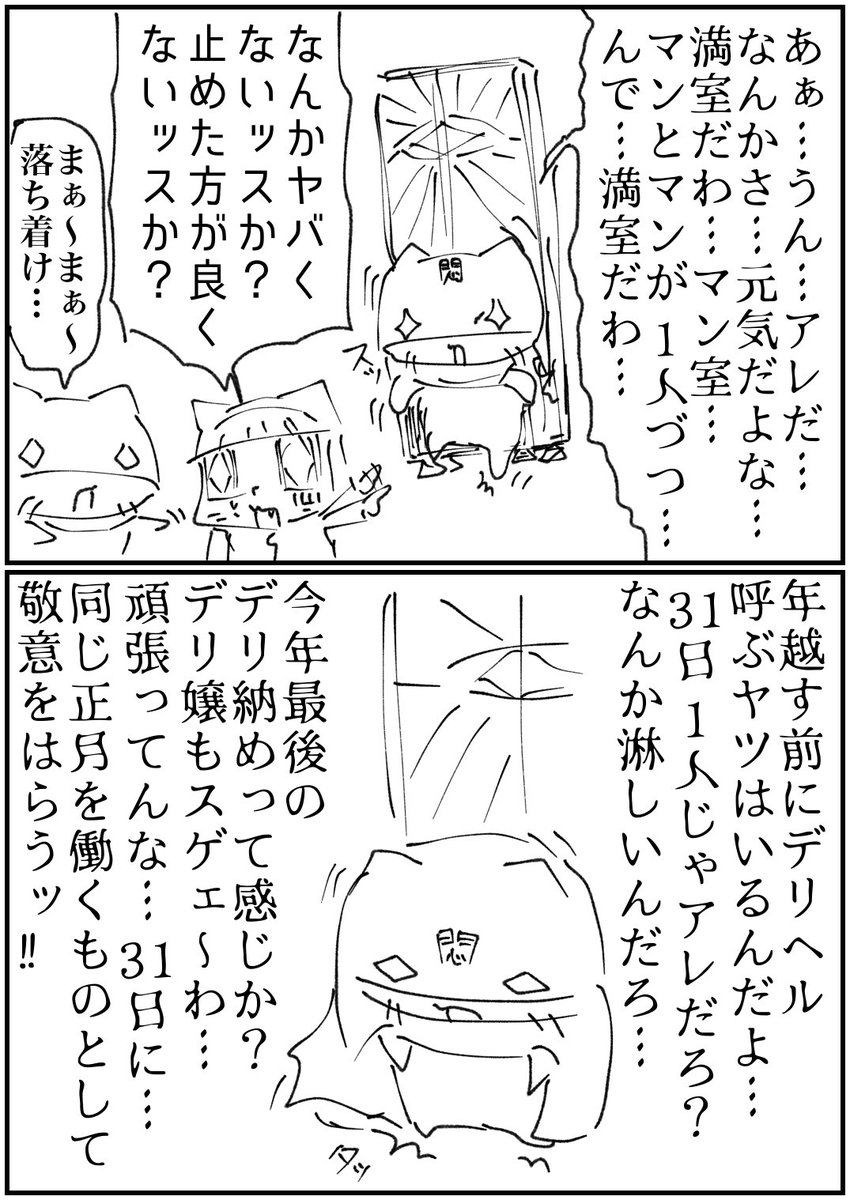 あぁ…うん…アレだ…
なんかさ…元気だよな…
満室だわ…マン室…
マンとマンが1人づつ…
んで…満室だわ…
悶
ズッ
なんかヤバく
ないッスか？
止めた方が良く
ないッスか？
まぁ～まぁ～
落ち着け…
年越す前にデリヘル
呼ぶヤツはいるんだよ…
31日1人じゃアレだろ？
なんか淋しいんだろ…
悶
今年最後の
デリ納めって感じか？
デリ嬢もスゲェ～わ…
頑張ってんな…31日に…
同じ正月を働くものとして
敬意をはらうッ!!
タッ